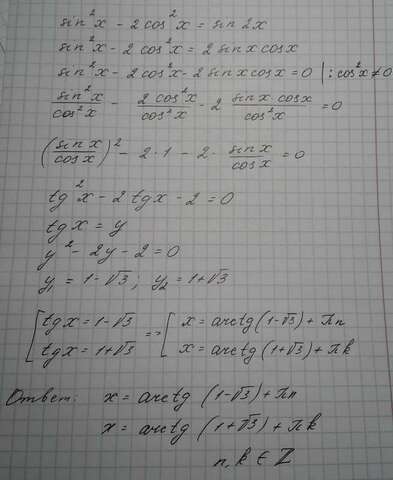 sin²x - 2cos²x = sin 2x
sin²x - 2cos²x = 2 sinx cosx
sin²x - 2cos²x - 2 sinx cosx = 0 | : cos²x ≠ 0
sin²x/cos²x - 2cos²x/cos²x - 2 sinx·cosx/cos²x = 0
(sin x/cos x)² - 2·1 - 2·sinx/cosx = 0
tg²x - 2tgx - 2 = 0
tgx = y
y² - 2y - 2 = 0
y₁ = 1-√3; y₂ = 1+√3
[tgx = 1-√3 => [x = arctg(1-√3) + πn
[tgx = 1+√3 [x = arctg(1+√3) + πk
Ответ: x = arctg (1-√3) + πn
x = arctg (1+√3) + πk
n, k ∈ Z